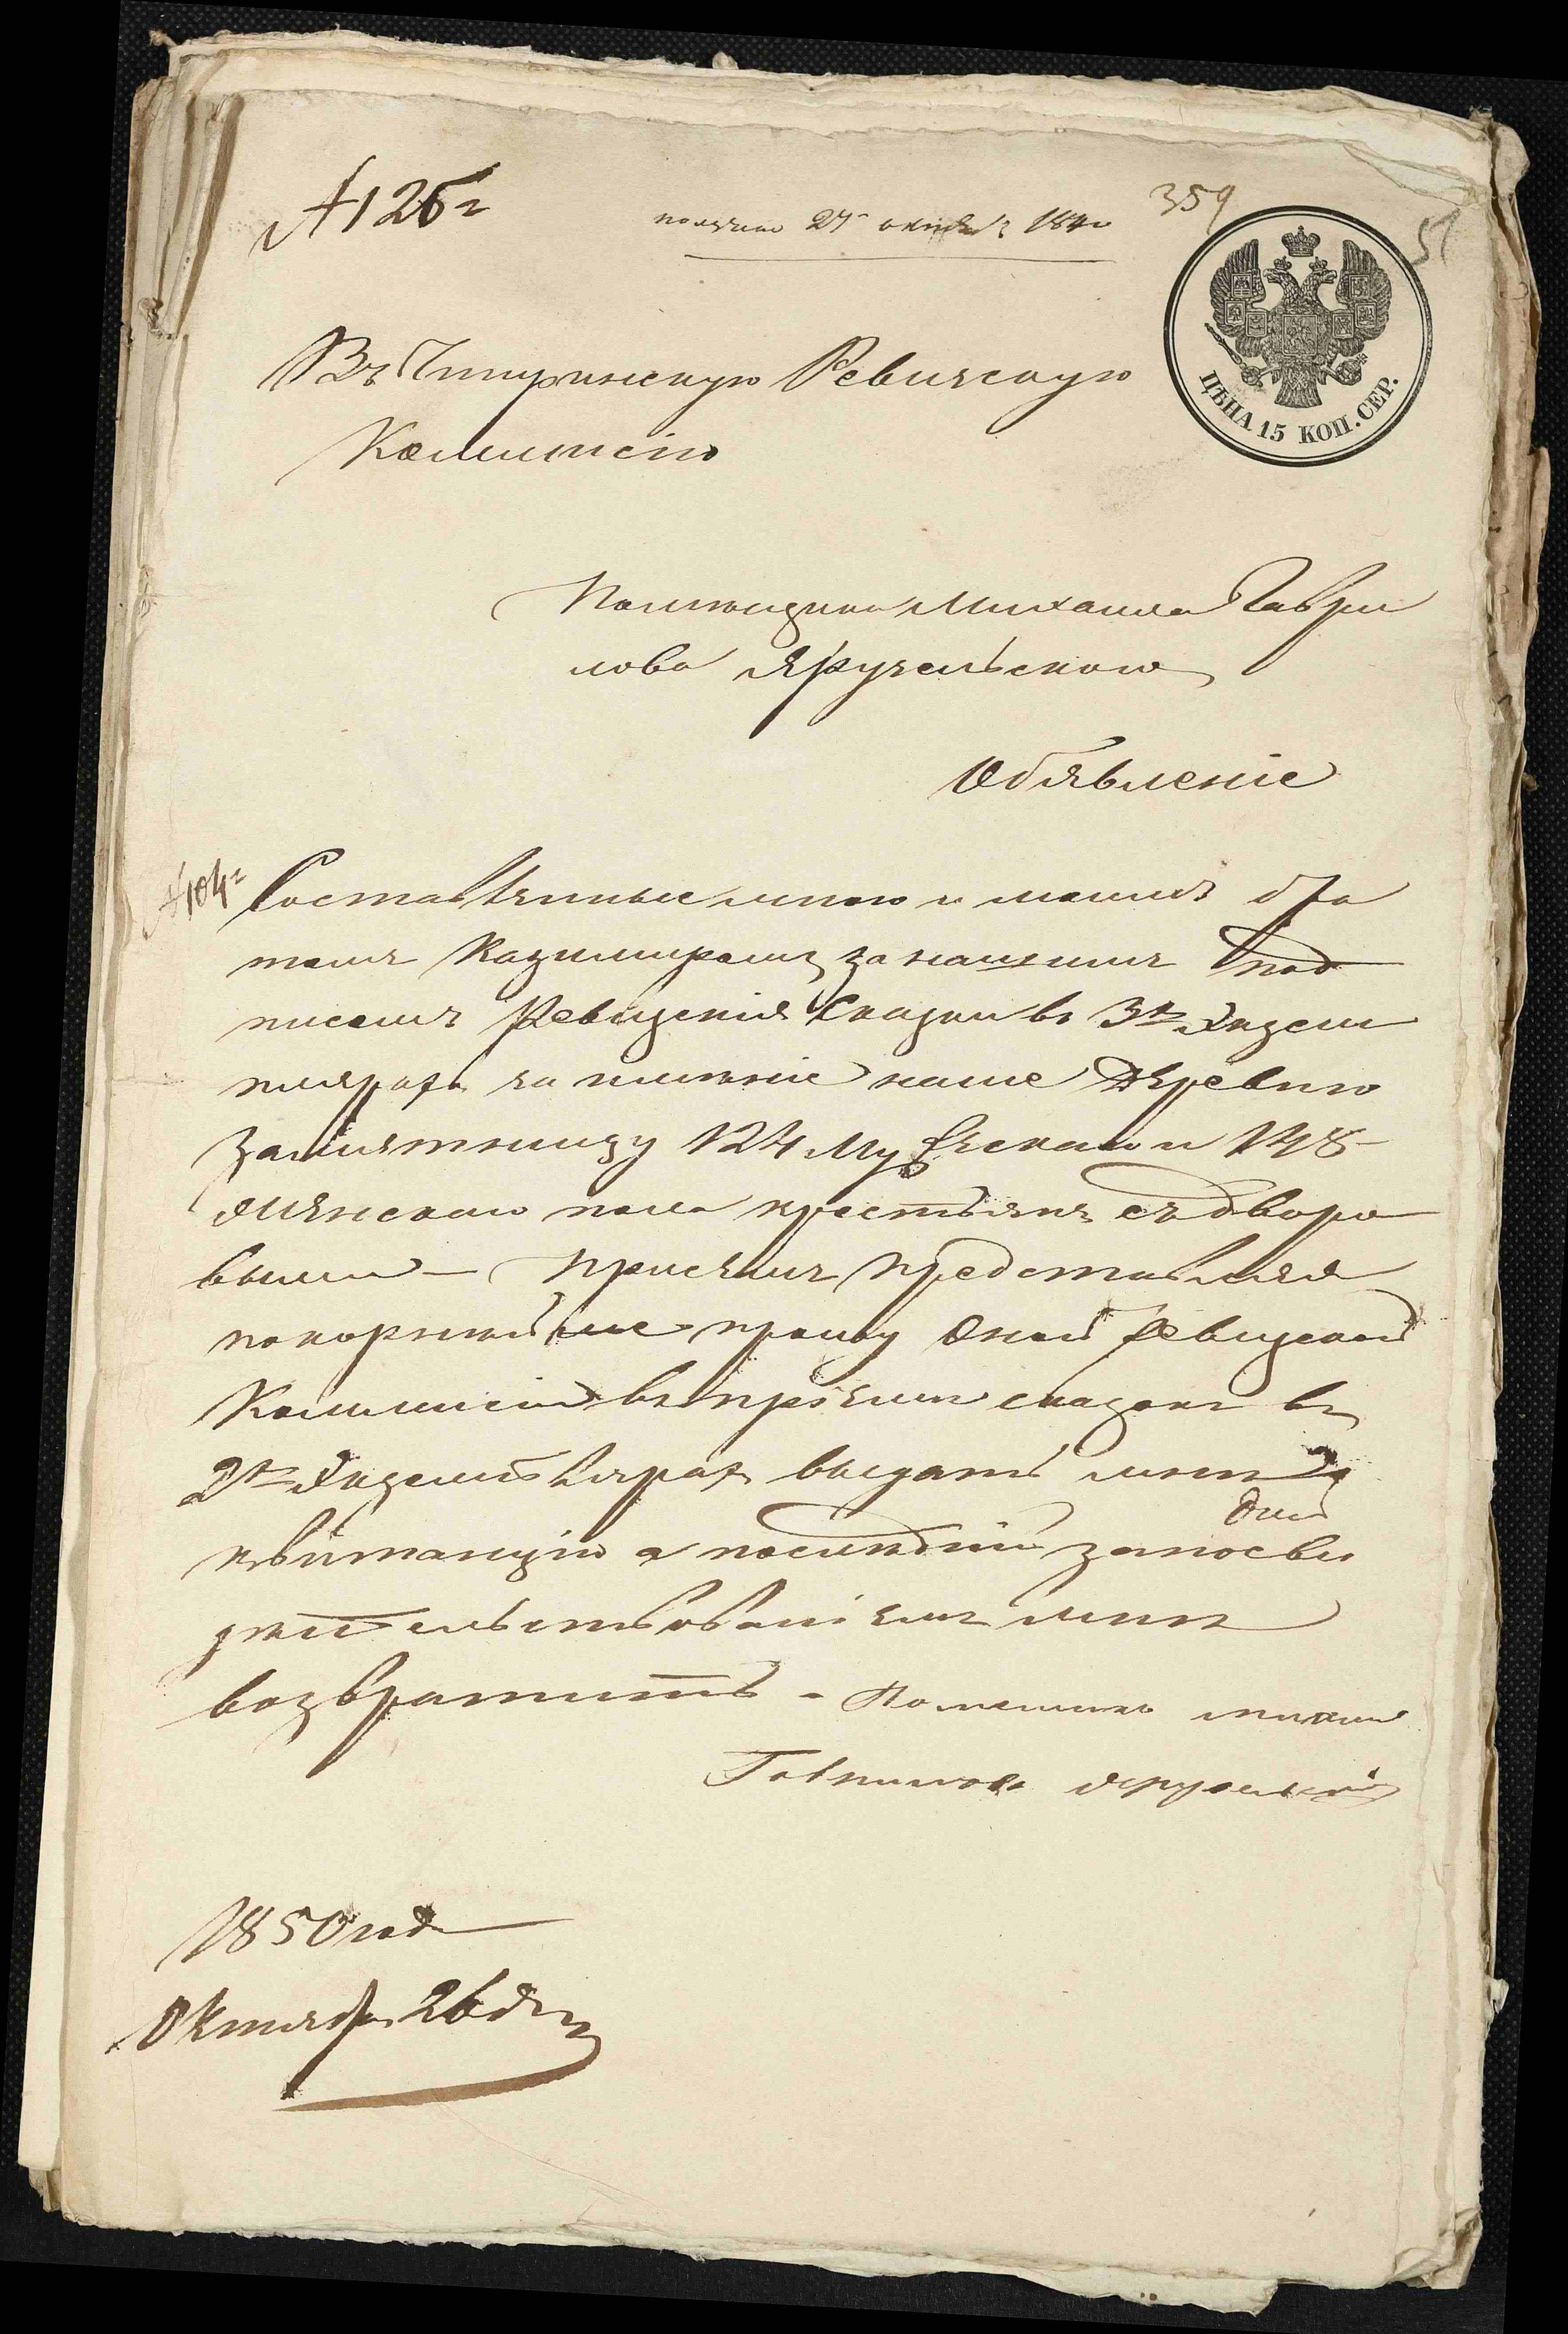 №126
получено 27 октября 1850
359
51
ЦѢНА 15 КОП. СЕР.
Въ Чигиринскую Ревизскую
Коммисію
Помещика Михаила Гаври
лова Яручельского
Объявленіе
№104
Составленные мною и моимъ бра
томъ Казимиромъ за нашимъ под
писомъ Ревизскія Сказки въ 3хъ Экзем
плярахъ на имѣніе наше Деревню
Замятницу 124 Мужеского и 148
Женского пола крестьянъ съ дворо
выми – при семъ представляя
покорнейше прошу Оной Ревизской
Коммисіи въ пріеме сказокъ въ
2хъ Экземплярахъ выдать мнѣ
квитанцію а последній за посви
дѣтельствованіемъ мнѣ
возвратить – Помещикъ Михаилъ
Гаврилова Яручельскій
1850 года
Октября 26 дня